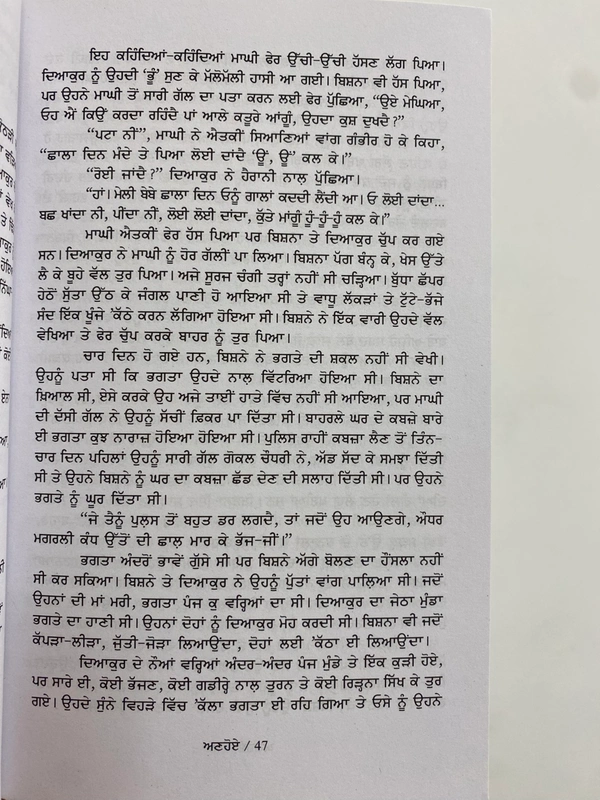 ਇਹ ਕਹਿੰਦਿਆਂ-ਕਹਿੰਦਿਆਂ ਮਾਘੀ ਫੇਰ ਉੱਚੀ-ਉੱਚੀ ਹੱਸਣ ਲੱਗ ਪਿਆ।
ਦਿਆਕੁਰ ਨੂੰ ਉਹਦੀ ‘ਭੂੰ’ ਸੁਣ ਕੇ ਮੱਲੋਮੱਲੀ ਹਾਸੀ ਆ ਗਈ। ਬਿਸ਼ਨਾ ਵੀ ਹੱਸ ਪਿਆ,
ਪਰ ਉਹਨੇ ਮਾਘੀ ਤੋਂ ਸਾਰੀ ਗੱਲ ਦਾ ਪਤਾ ਕਰਨ ਲਈ ਫੇਰ ਪੁੱਛਿਆ, “ਉਏ ਮੇਘਿਆ,
ਓਹ ਐਂ ਕਿਉਂ ਕਰਦਾ ਰਹਿੰਦੈ ਪਾਂ ਆਲੇ ਕਤੂਰੇ ਆਂਗੂੰ, ਉਹਦਾ ਕੁਸ਼ ਦੁਖਦੈ?”
“ਪਟਾ ਨੀਂ”, ਮਾਘੀ ਨੇ ਐਤਕੀਂ ਸਿਆਣਿਆਂ ਵਾਂਗ ਗੰਭੀਰ ਹੋ ਕੇ ਕਿਹਾ,
“ਛਾਲਾ ਦਿਨ ਮੰਦੇ ਤੇ ਪਿਆ ਲੋਈ ਦਾਂਦੈ ‘ਊਂ, ਊਂ’ ਕਲ ਕੇ।”
“ਰੋਈ ਜਾਂਦੈ?” ਦਿਆਕੁਰ ਨੇ ਹੈਰਾਨੀ ਨਾਲ਼ ਪੁੱਛਿਆ।
“ਹਾਂ। ਮੇਲੀ ਬੇਬੇ ਛਾਲਾ ਦਿਨ ਓਨੂੰ ਗਾਲਾਂ ਕਦਦੀ ਲੈਂਦੀ ਆ। ਓ ਲੋਈ ਦਾਂਦਾ...
ਬਛ ਖਾਂਦਾ ਨੀ, ਪੀਂਦਾ ਨੀਂ, ਲੋਈ ਲੋਈ ਦਾਂਦਾ, ਕੁੱਤੇ ਮਾਂਗੂੰ ਹੂੰ-ਹੂੰ-ਹੂੰ ਕਲ ਕੇ।”
ਮਾਘੀ ਐਤਕੀਂ ਫੇਰ ਹੱਸ ਪਿਆ ਪਰ ਬਿਸ਼ਨਾ ਤੇ ਦਿਆਕੁਰ ਚੁੱਪ ਕਰ ਗਏ
ਸਨ। ਦਿਆਕੁਰ ਨੇ ਮਾਘੀ ਨੂੰ ਹੋਰ ਗੱਲੀਂ ਪਾ ਲਿਆ। ਬਿਸ਼ਨਾ ਪੱਗ ਬੰਨ੍ਹ ਕੇ, ਖੇਸ ਉੱਤੇ
ਲੈ ਕੇ ਬੂਹੇ ਵੱਲ ਤੁਰ ਪਿਆ। ਅਜੇ ਸੂਰਜ ਚੰਗੀ ਤਰ੍ਹਾਂ ਨਹੀਂ ਸੀ ਚੜ੍ਹਿਆ। ਬੁੱਧਾ ਛੱਪਰ
ਹੇਠੋਂ ਸੁੱਤਾ ਉੱਠ ਕੇ ਜੰਗਲ ਪਾਣੀ ਹੋ ਆਇਆ ਸੀ ਤੇ ਵਾਧੂ ਲੱਕੜਾਂ ਤੇ ਟੁੱਟੇ-ਭੱਜੇ
ਸੰਦ ਇੱਕ ਖੂੰਜੇ ’ਕੱਠੇ ਕਰਨ ਲੱਗਿਆ ਹੋਇਆ ਸੀ। ਬਿਸ਼ਨੇ ਨੇ ਇੱਕ ਵਾਰੀ ਉਹਦੇ ਵੱਲ
ਵੇਖਿਆ ਤੇ ਫੇਰ ਚੁੱਪ ਕਰਕੇ ਬਾਹਰ ਨੂੰ ਤੁਰ ਪਿਆ।
ਚਾਰ ਦਿਨ ਹੋ ਗਏ ਹਨ, ਬਿਸ਼ਨੇ ਨੇ ਭਗਤੇ ਦੀ ਸ਼ਕਲ ਨਹੀਂ ਸੀ ਵੇਖੀ।
ਉਹਨੂੰ ਪਤਾ ਸੀ ਕਿ ਭਗਤਾ ਉਹਦੇ ਨਾਲ਼ ਵਿੱਟਰਿਆ ਹੋਇਆ ਸੀ। ਬਿਸ਼ਨੇ ਦਾ
ਖ਼ਿਆਲ ਸੀ, ਏਸੇ ਕਰਕੇ ਉਹ ਅਜੇ ਤਾਈਂ ਹਾਤੇ ਵਿੱਚ ਨਹੀਂ ਸੀ ਆਇਆ, ਪਰ ਮਾਘੀ
ਦੀ ਦੱਸੀ ਗੱਲ ਨੇ ਉਹਨੂੰ ਸੱਚੀਂ ਫ਼ਿਕਰ ਪਾ ਦਿੱਤਾ ਸੀ। ਬਾਹਰਲੇ ਘਰ ਦੇ ਕਬਜ਼ੇ ਬਾਰੇ
ਈ ਭਗਤਾ ਕੁਝ ਨਾਰਾਜ਼ ਹੋਇਆ ਹੋਇਆ ਸੀ। ਪੁਲਿਸ ਰਾਹੀਂ ਕਬਜ਼ਾ ਲੈਣ ਤੋਂ ਤਿੰਨ-
ਚਾਰ ਦਿਨ ਪਹਿਲਾਂ ਉਹਨੂੰ ਸਾਰੀ ਗੱਲ ਗੋਕਲ ਚੌਧਰੀ ਨੇ, ਅੱਡ ਸੱਦ ਕੇ ਸਮਝਾ ਦਿੱਤੀ
ਸੀ ਤੇ ਉਹਨੇ ਬਿਸ਼ਨੇ ਨੂੰ ਘਰ ਦਾ ਕਬਜ਼ਾ ਛੱਡ ਦੇਣ ਦੀ ਸਲਾਹ ਦਿੱਤੀ ਸੀ। ਪਰ ਉਹਨੇ
ਭਗਤੇ ਨੂੰ ਘੂਰ ਦਿੱਤਾ ਸੀ।
“ਜੇ ਤੈਨੂੰ ਪੁਲ੍ਸ ਤੋਂ ਬਹੁਤ ਡਰ ਲਗਦੈ, ਤਾਂ ਜਦੋਂ ਉਹ ਆਉਣਗੇ, ਔਧਰ
ਮਗਰਲੀ ਕੰਧ ਉੱਤੋਂ ਦੀ ਛਾਲ਼ ਮਾਰ ਕੇ ਭੱਜ-ਜੀਂ।”
ਭਗਤਾ ਅੰਦਰੋਂ ਭਾਵੇਂ ਗੁੱਸੇ ਸੀ ਪਰ ਬਿਸ਼ਨੇ ਅੱਗੇ ਬੋਲਣ ਦਾ ਹੌਂਸਲਾ ਨਹੀਂ
ਸੀ ਕਰ ਸਕਿਆ। ਬਿਸ਼ਨੇ ਤੇ ਦਿਆਕੁਰ ਨੇ ਉਹਨੂੰ ਪੁੱਤਾਂ ਵਾਂਗ ਪਾਲ਼ਿਆ ਸੀ। ਜਦੋਂ
ਉਹਨਾਂ ਦੀ ਮਾਂ ਮਰੀ, ਭਗਤਾ ਪੰਜ ਕੁ ਵਰ੍ਹਿਆਂ ਦਾ ਸੀ। ਦਿਆਕੁਰ ਦਾ ਜੇਠਾ ਮੁੰਡਾ
ਭਗਤੇ ਦਾ ਹਾਣੀ ਸੀ। ਉਹਨਾਂ ਦੋਹਾਂ ਨੂੰ ਦਿਆਕੁਰ ਮੋਹ ਕਰਦੀ ਸੀ। ਬਿਸ਼ਨਾ ਵੀ ਜਦੋਂ
ਕੱਪੜਾ-ਲੀੜਾ, ਜੁੱਤੀ-ਜੋੜਾ ਲਿਆਉਂਦਾ, ਦੋਹਾਂ ਲਈ ’ਕੱਠਾ ਈ ਲਿਆਉਂਦਾ।
ਦਿਆਕੁਰ ਦੇ ਨੌਂਆਂ ਵਰ੍ਹਿਆਂ ਅੰਦਰ-ਅੰਦਰ ਪੰਜ ਮੁੰਡੇ ਤੇ ਇੱਕ ਕੁੜੀ ਹੋਏ,
ਪਰ ਸਾਰੇ ਈ, ਕੋਈ ਭੱਜਣ, ਕੋਈ ਗਡੀਰ੍ਹੇ ਨਾਲ਼ ਤੁਰਨ ਤੇ ਕੋਈ ਰਿੜ੍ਹਨਾ ਸਿੱਖ ਕੇ ਤੁਰ
ਗਏ। ਉਹਦੇ ਸੁੰਨੇ ਵਿਹੜੇ ਵਿੱਚ ’ਕੱਲਾ ਭਗਤਾ ਈ ਰਹਿ ਗਿਆ ਤੇ ਓਸੇ ਨੂੰ ਉਹਨੇ
ਅਣਹੋਏ / 47